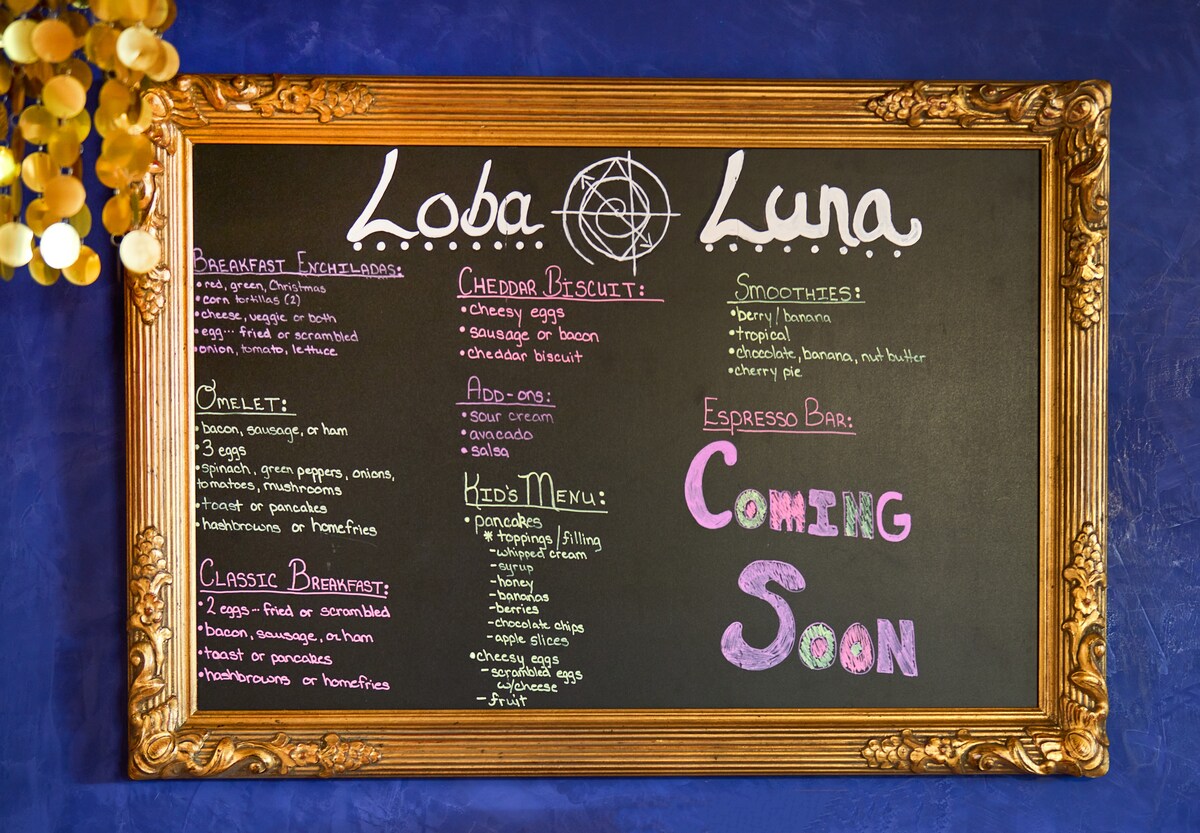 Loba Luna
BREAKFAST ENCHILADAS:
• red, green, Christmas
• corn tortillas (2)
• cheese, veggie or both
• egg... fried or scrambled
• onion, tomato, lettuce
OMELET:
• bacon, sausage, or ham
• 3 eggs
• spinach, green peppers, onions,
tomatoes, mushrooms
• toast or pancakes
• hashbrowns or homefries
CLASSIC BREAKFAST:
• 2 eggs... fried or scrambled
• bacon, sausage, or ham
• toast or pancakes
• hashbrowns or homefries
CHEDDAR BISCUIT:
• cheesy eggs
• sausage or bacon
• cheddar biscuit
ADD-ONS:
• sour cream
• avacado
• salsa
KID'S MENU:
• pancakes
* toppings/filling
- whipped cream
- syrup
- honey
- bananas
- berries
- chocolate chips
- apple slices
• cheesy eggs
- scrambled eggs
w/cheese
- fruit
SMOOTHIES:
• berry/banana
• tropical
• chocolate, banana, nut butter
• cherry pie
ESPRESSO BAR:
COMING
SOON